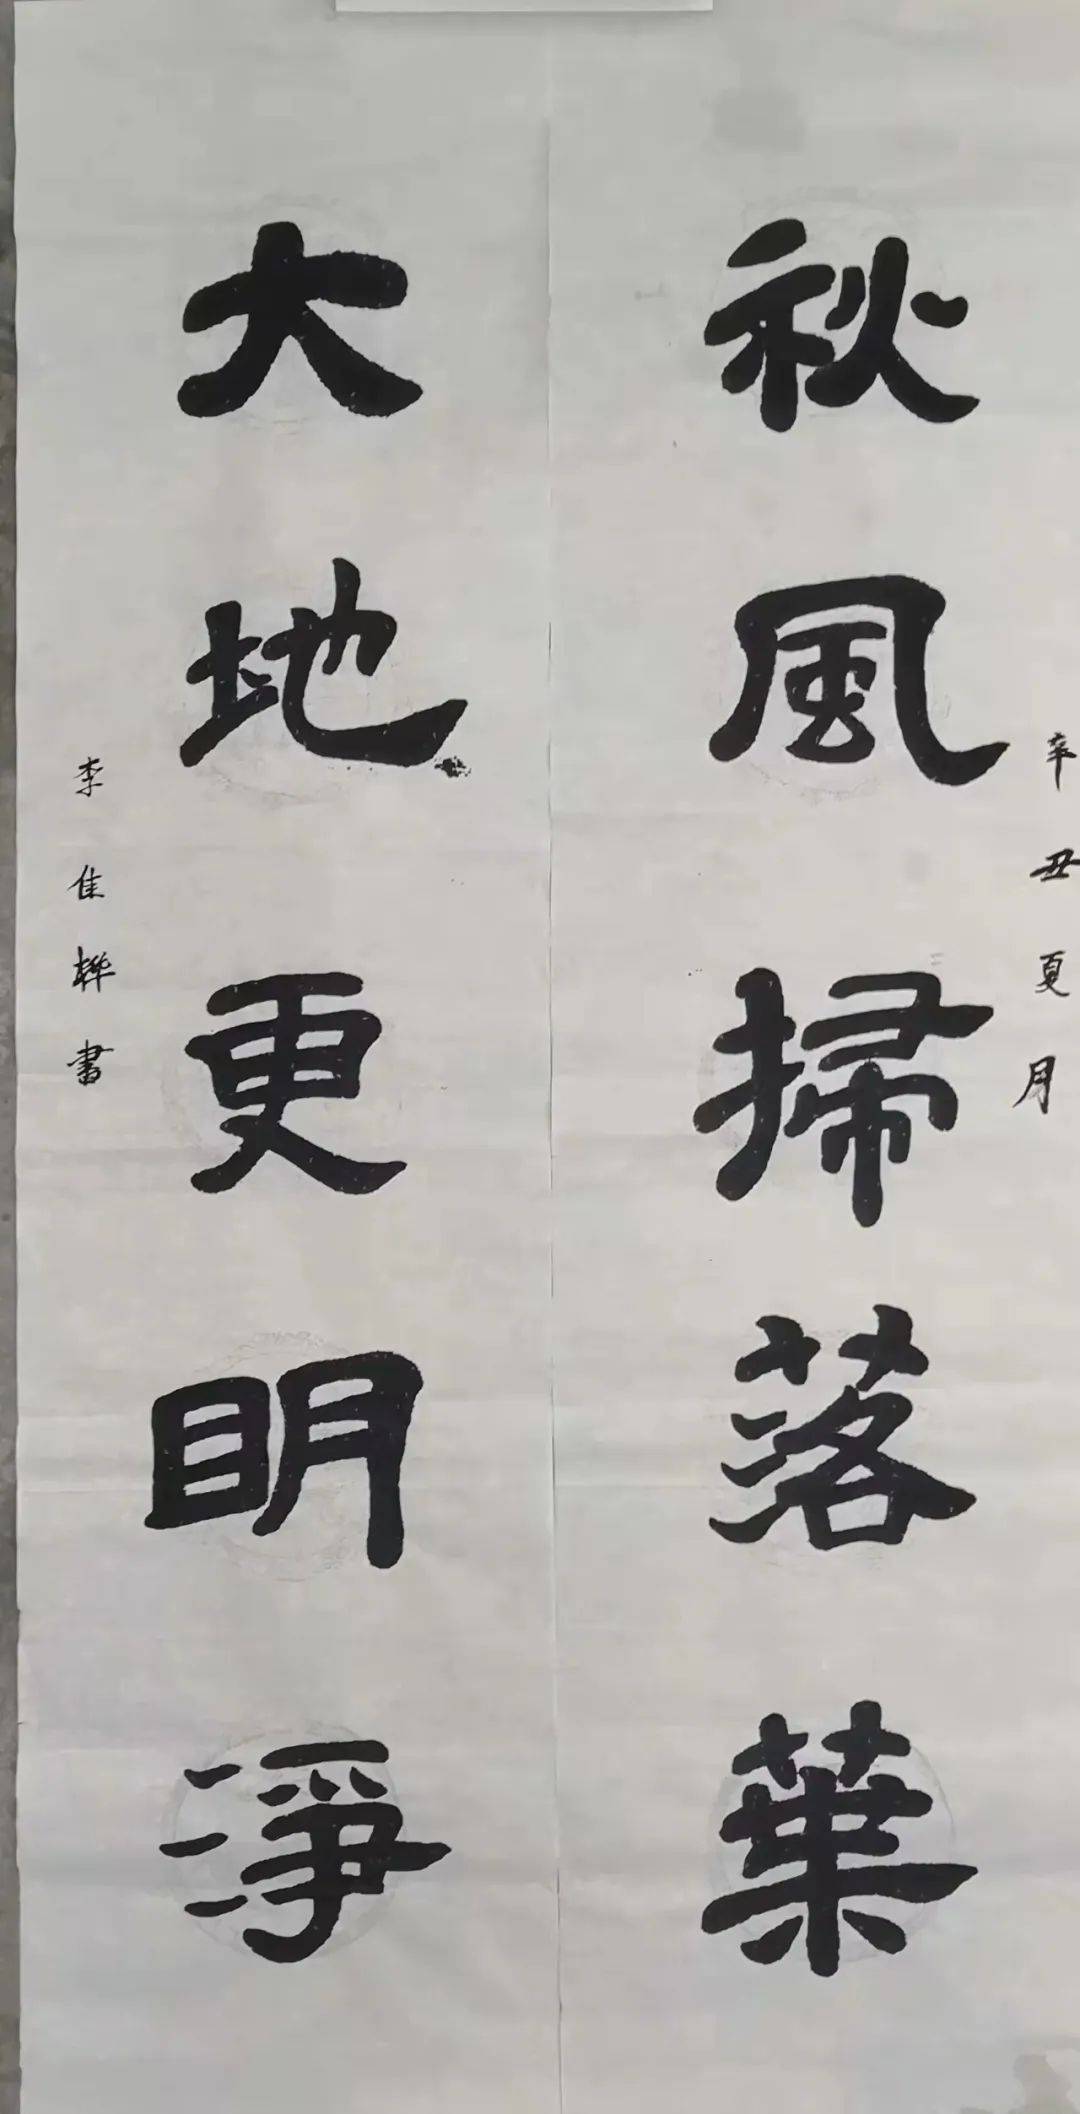 辛丑夏月
秋風掃落葉
大地更明淨
李佳樺書